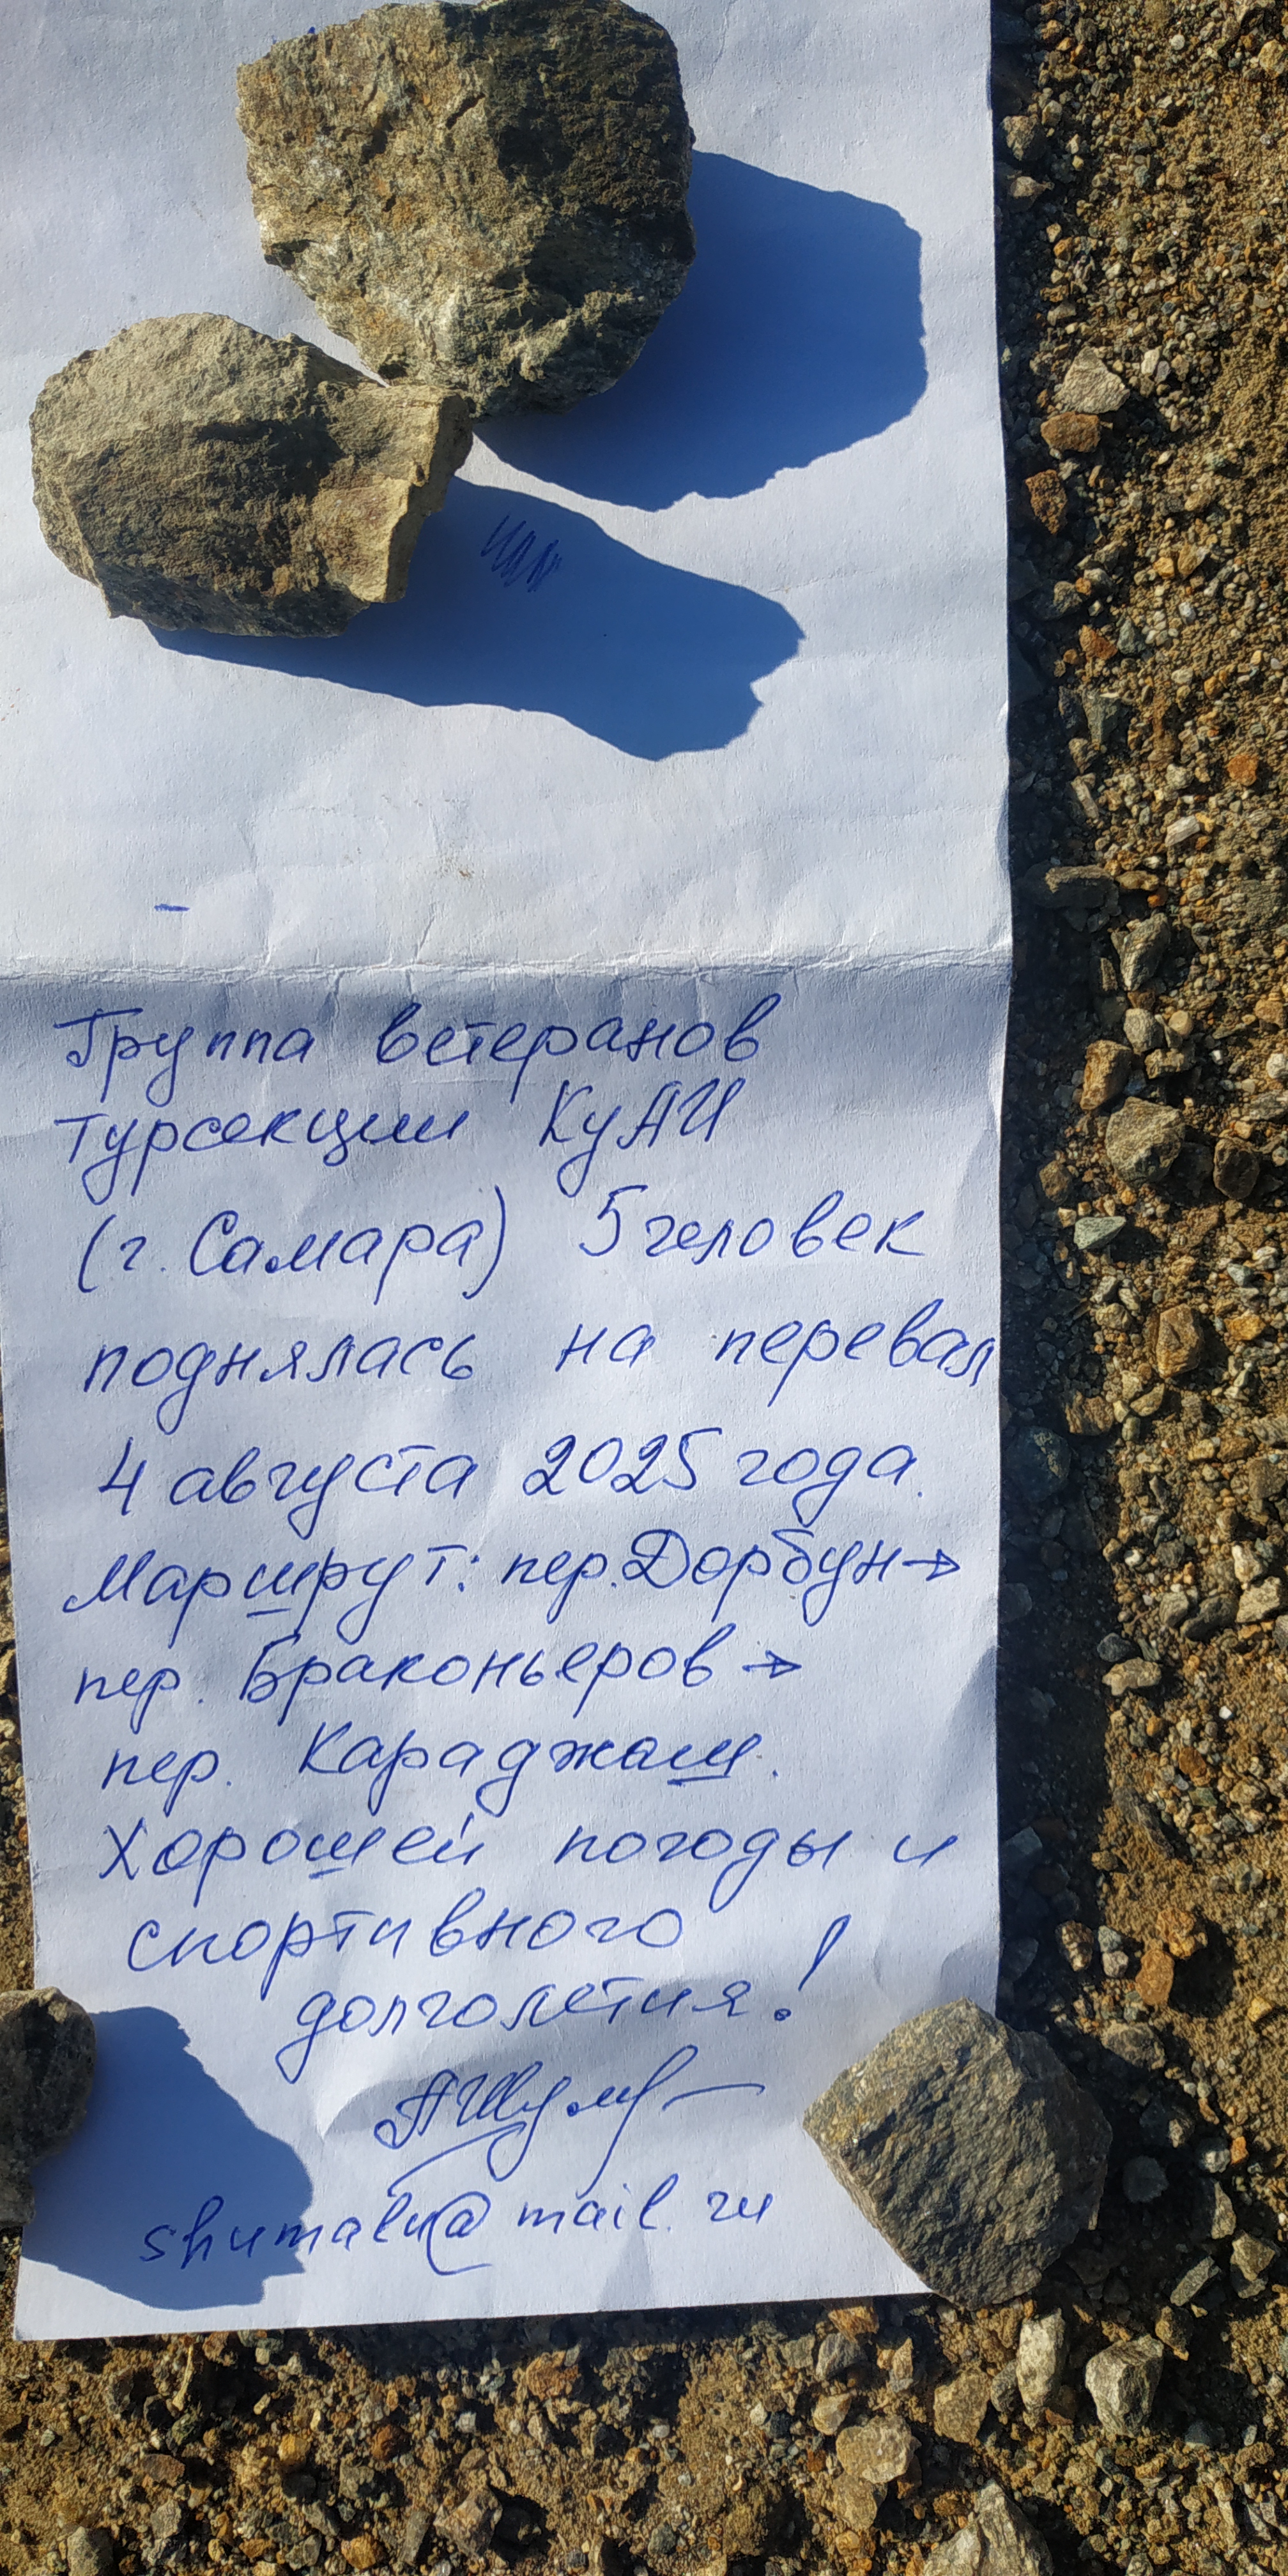 Группа ветеранов
турсекции КуАИ
(г. Самара) 5 человек
поднялась на перевал
4 августа 2025 года.
Маршрут: пер. Дорбун →
пер. Браконьеров →
пер. Караджаш.
Хорошей погоды и
спортивного
долголетия!
shumalu@mail.ru